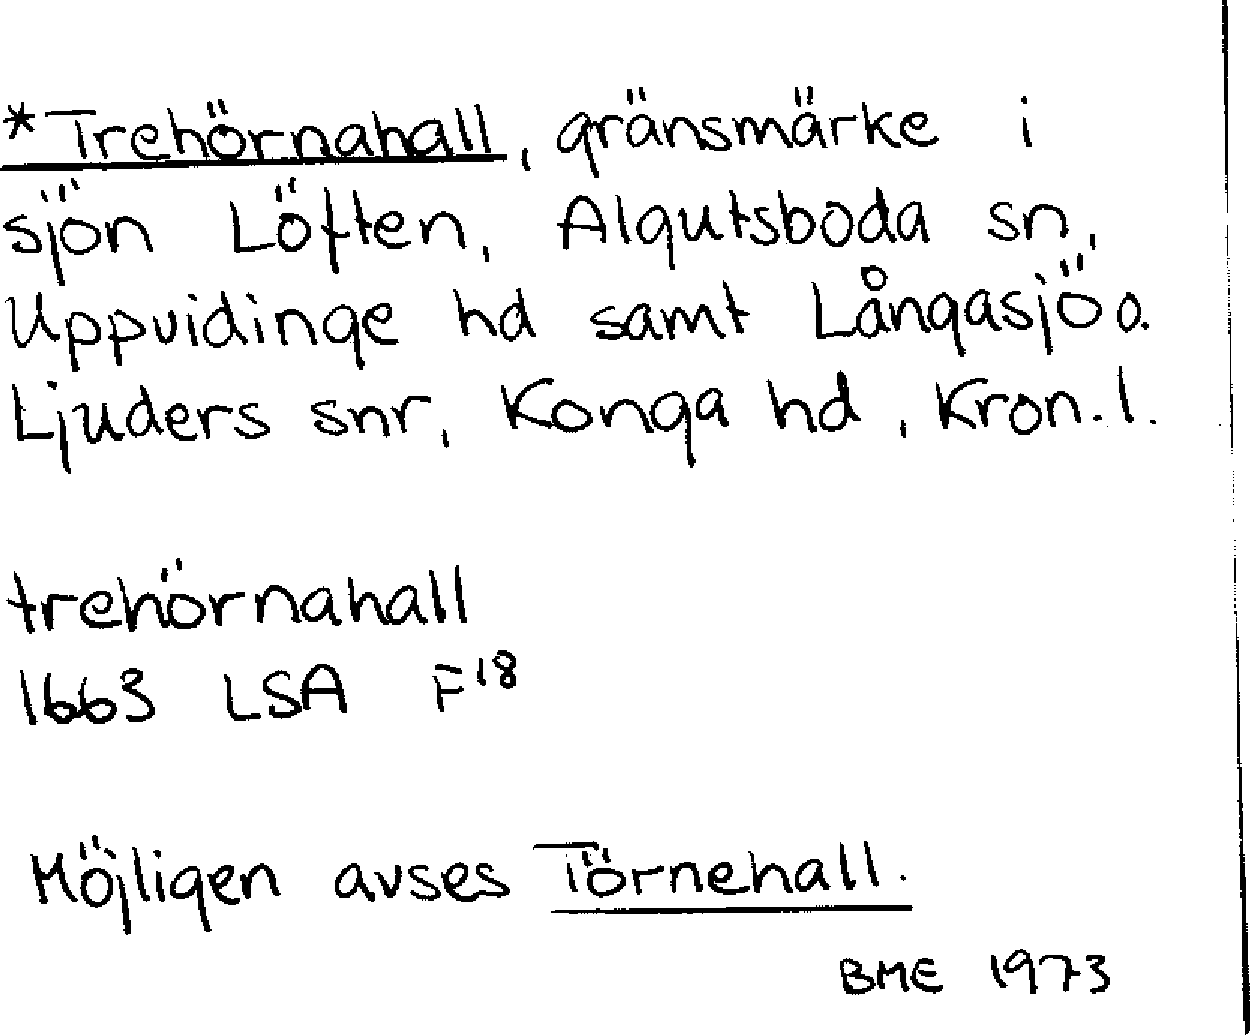 *Trehörnahall, gränsmärke i
sjön Löften, Algutsboda sn,
Uppvidinge hd samt Långasjö o.
Ljuders snr, Konga hd, Kron. l.
trehörnahall
1663 LSA F18
Möjligen avses Törnehall.
BME 1973